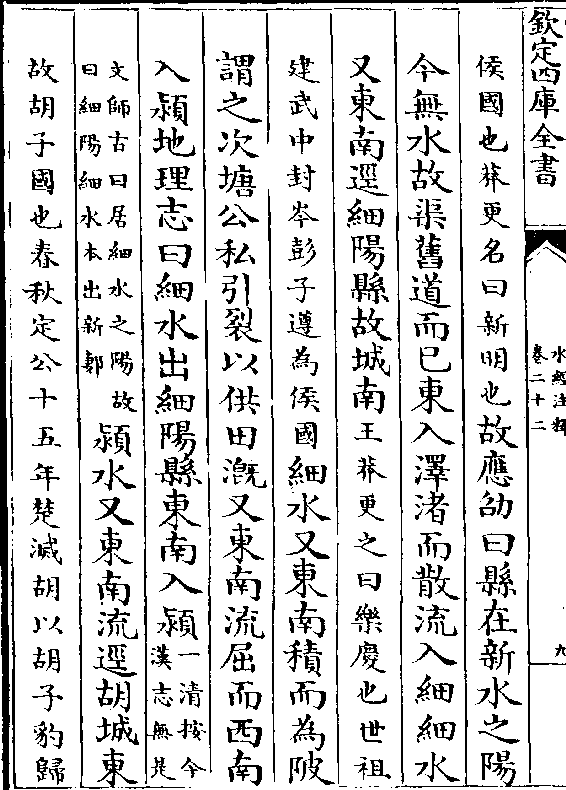 欽定四庫全書
水經注釋
卷二十二
九
侯國也莽更名曰新明也故應劭曰縣在新水之陽
今無水故渠舊道而已東入澤渚而散流入細細水
又東南逕細陽縣故城南王莽更之曰樂慶也世祖
建武中封岑彭子遵為侯國細水又東南積而為陂
謂之次塘公私引裂以供田溉又東南流屈而西南
入潁地理志曰細水出細陽縣東南入潁一清按今漢志無是
文師古曰居細水之陽故曰細陽細水本出新郪潁水又東南流逕胡城東
故胡子國也春秋定公十五年楚滅胡以胡子豹歸